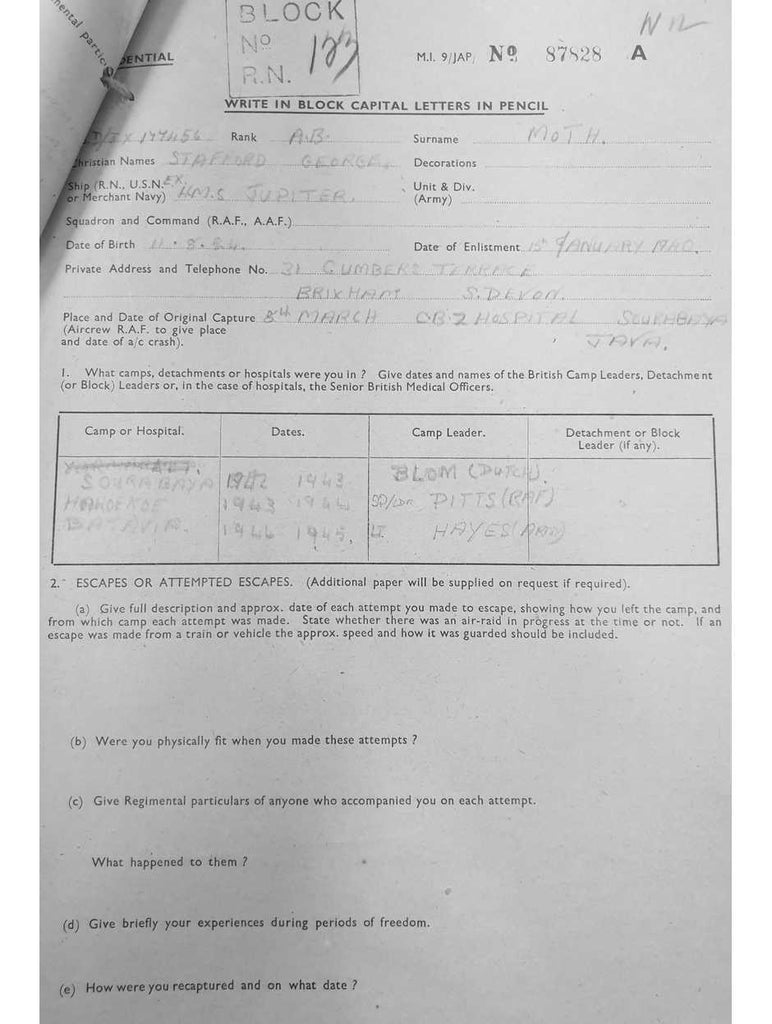 mental partic
DENTIAL
BLOCK
No 133
R.N.
NIL
M.I. 9/JAP/ No 87828 A
WRITE IN BLOCK CAPITAL LETTERS IN PENCIL
Rank A.B. Surname MOTH.
Christian Names STAFFORD GEORGE. Decorations
Ship (R.N., U.S.N. or Merchant Navy) EX H.M.S JUPITER. Unit & Div. (Army)
Squadron and Command (R.A.F., A.A.F.)
Date of Birth 11.8.24. Date of Enlistment JANUARY 1940.
Private Address and Telephone No. 31 TERRACE
BRIXHAM S. DEVON.
Place and Date of Original Capture 8th MARCH HOSPITAL SOURABAYA
(Aircrew R.A.F. to give place
and date of a/c crash). JAVA.
1. What camps, detachments or hospitals were you in ? Give dates and names of the British Camp Leaders, Detachment
(or Block) Leaders or, in the case of hospitals, the Senior British Medical Officers.
Camp or Hospital. Dates. Camp Leader. Detachment or Block Leader (if any).
SOURABAYA 1942 1943 BLOM (DUTCH).
1943 1944 SQ/LDR PITTS (RAF)
BATAVIA. 1944 1945. LT. HAYES
2. ESCAPES OR ATTEMPTED ESCAPES. (Additional paper will be supplied on request if required).
(a) Give full description and approx. date of each attempt you made to escape, showing how you left the camp, and
from which camp each attempt was made. State whether there was an air-raid in progress at the time or not. If an
escape was made from a train or vehicle the approx. speed and how it was guarded should be included.
(b) Were you physically fit when you made these attempts ?
(c) Give Regimental particulars of anyone who accompanied you on each attempt.
What happened to them ?
(d) Give briefly your experiences during periods of freedom.
(e) How were you recaptured and on what date ?